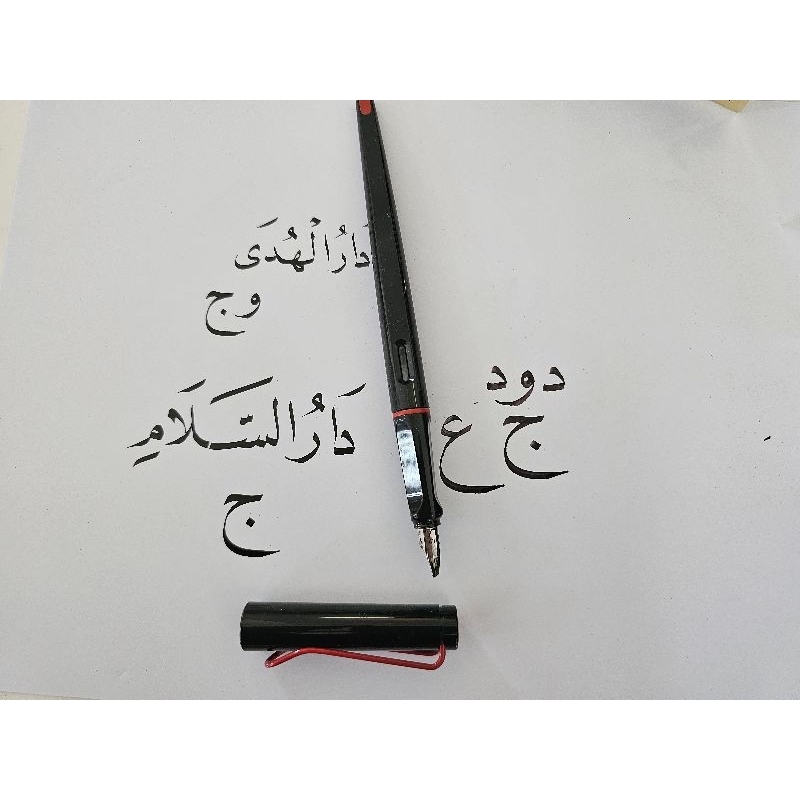 دَارُ الْهُدَى
وج
دود
ج ع
دَارُ السَّلَامِ
ج